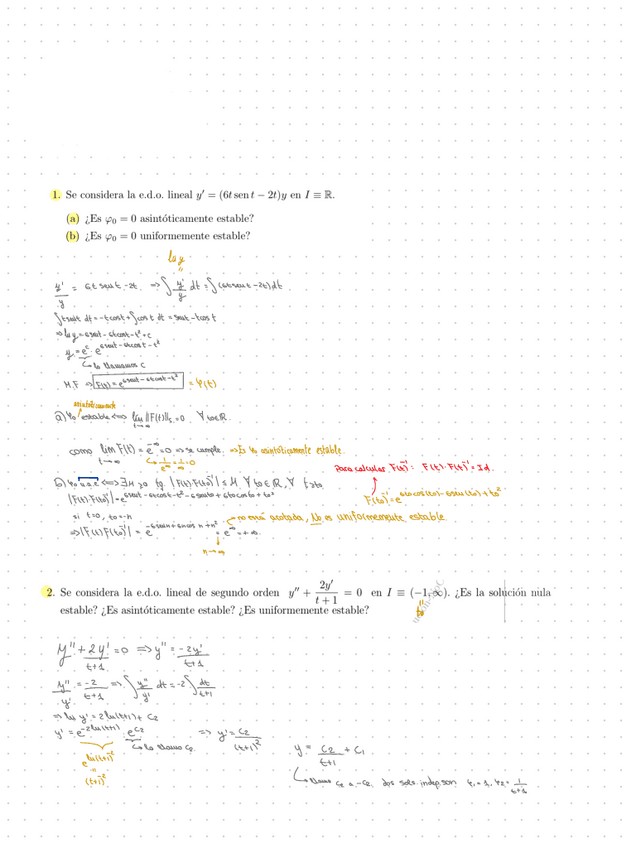 1. Se considera la e.d.o. lineal y' = (6t sen t − 2t)y en I ≡ ℝ.
(a) ¿Es φ₀ = 0 asintóticamente estable?
(b) ¿Es φ₀ = 0 uniformemente estable?
log y
"
y'/y = 6t sent - 2t ⇒ ∫ y'/y dt = ∫(6t sent - 2t)dt
∫t sent dt = -t cost + ∫cos t dt = sent - t cost
⇒ log y = 6 sent - 6t cost - t² + c
y = e^c · e^(6 sent - 6t cost - t²)
↳ lo llamamos C
M.F ⇒ F(t) = e^(6 sent - 6t cost - t²) = φ(t)
asintóticamente
a) φ₀ estable ⟺ lim t→∞ ||F(t)|| = 0 ∀ t₀∈ℝ.
como lim t→∞ F(t) = e^-∞ = 0 ⇒ se cumple. ⇒ Es φ₀ asintóticamente estable.
↳ 1/e^∞ = 1/∞ = 0
Para calcular F(t)⁻¹: F(t)·F(t)⁻¹ = Id.
b) φ₀ u.a.e ⟺ ∃M>0 tq. |F(t)·F(t₀)⁻¹| ≤ M ∀ t₀∈ℝ, ∀ t≥t₀
|F(t)·F(t₀)⁻¹| = e^(6 sent - 6t cost - t² - 6 sent₀ + 6t₀ cos t₀ + t₀²)
F(t₀)⁻¹ = e^(6t₀ cos(t₀) - 6 sen(t₀) + t₀²)
si t=0, t₀=-n
no está acotada, No es uniformemente estable
⇒ |F(t)F(t₀)⁻¹| = e = e^∞ = +∞.
n→∞
2. Se considera la e.d.o. lineal de segundo orden y'' + 2y'/(t + 1) = 0 en I ≡ (−1, ∞). ¿Es la solución nula
t₀
estable? ¿Es asintóticamente estable? ¿Es uniformemente estable?
y'' + 2y'/(t+1) = 0 ⇒ y'' = -2y'/(t+1)
y''/y' = -2/(t+1) ⇒ ∫ y''/y' dt = -2∫ dt/(t+1)
⇒ ln y' = 2 ln(t+1) + C₂
y' = e^(-2 ln(t+1)) · e^(C₂) ⇒ y' = C₂/(t+1)²
↳ lo llamo C₂
e^(ln(t+1)⁻²)
"
(t+1)⁻²
y = C₂/(t+1) + C₁
↳ llamo C₂ a -C₂, dos sols. indep son φ₁ = 1, φ₂ = 1/(t+1)